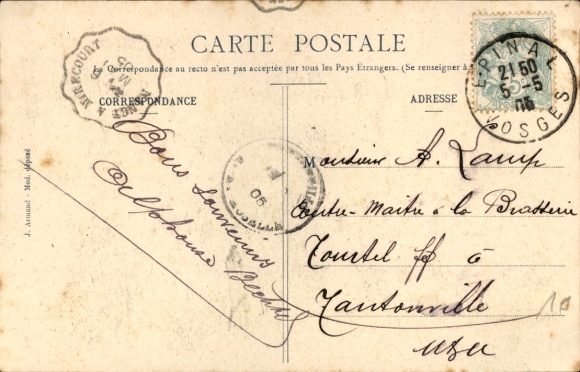 CARTE POSTALE
La Correspondance au recto n'est pas acceptée par tous les Pays Étrangers. (Se renseigner à
CORRESPONDANCE
ADRESSE
Bons souvenirs
Alphonse
Monsieur A. Lamp
Contre-Maitre à la Brasserie
Tourtel ff à
Tantonville
M&M
EPINAL
21 50
5 -5
05
VOSGES
A MIRECOURT
05
J. Armand - Mod. déposé
10